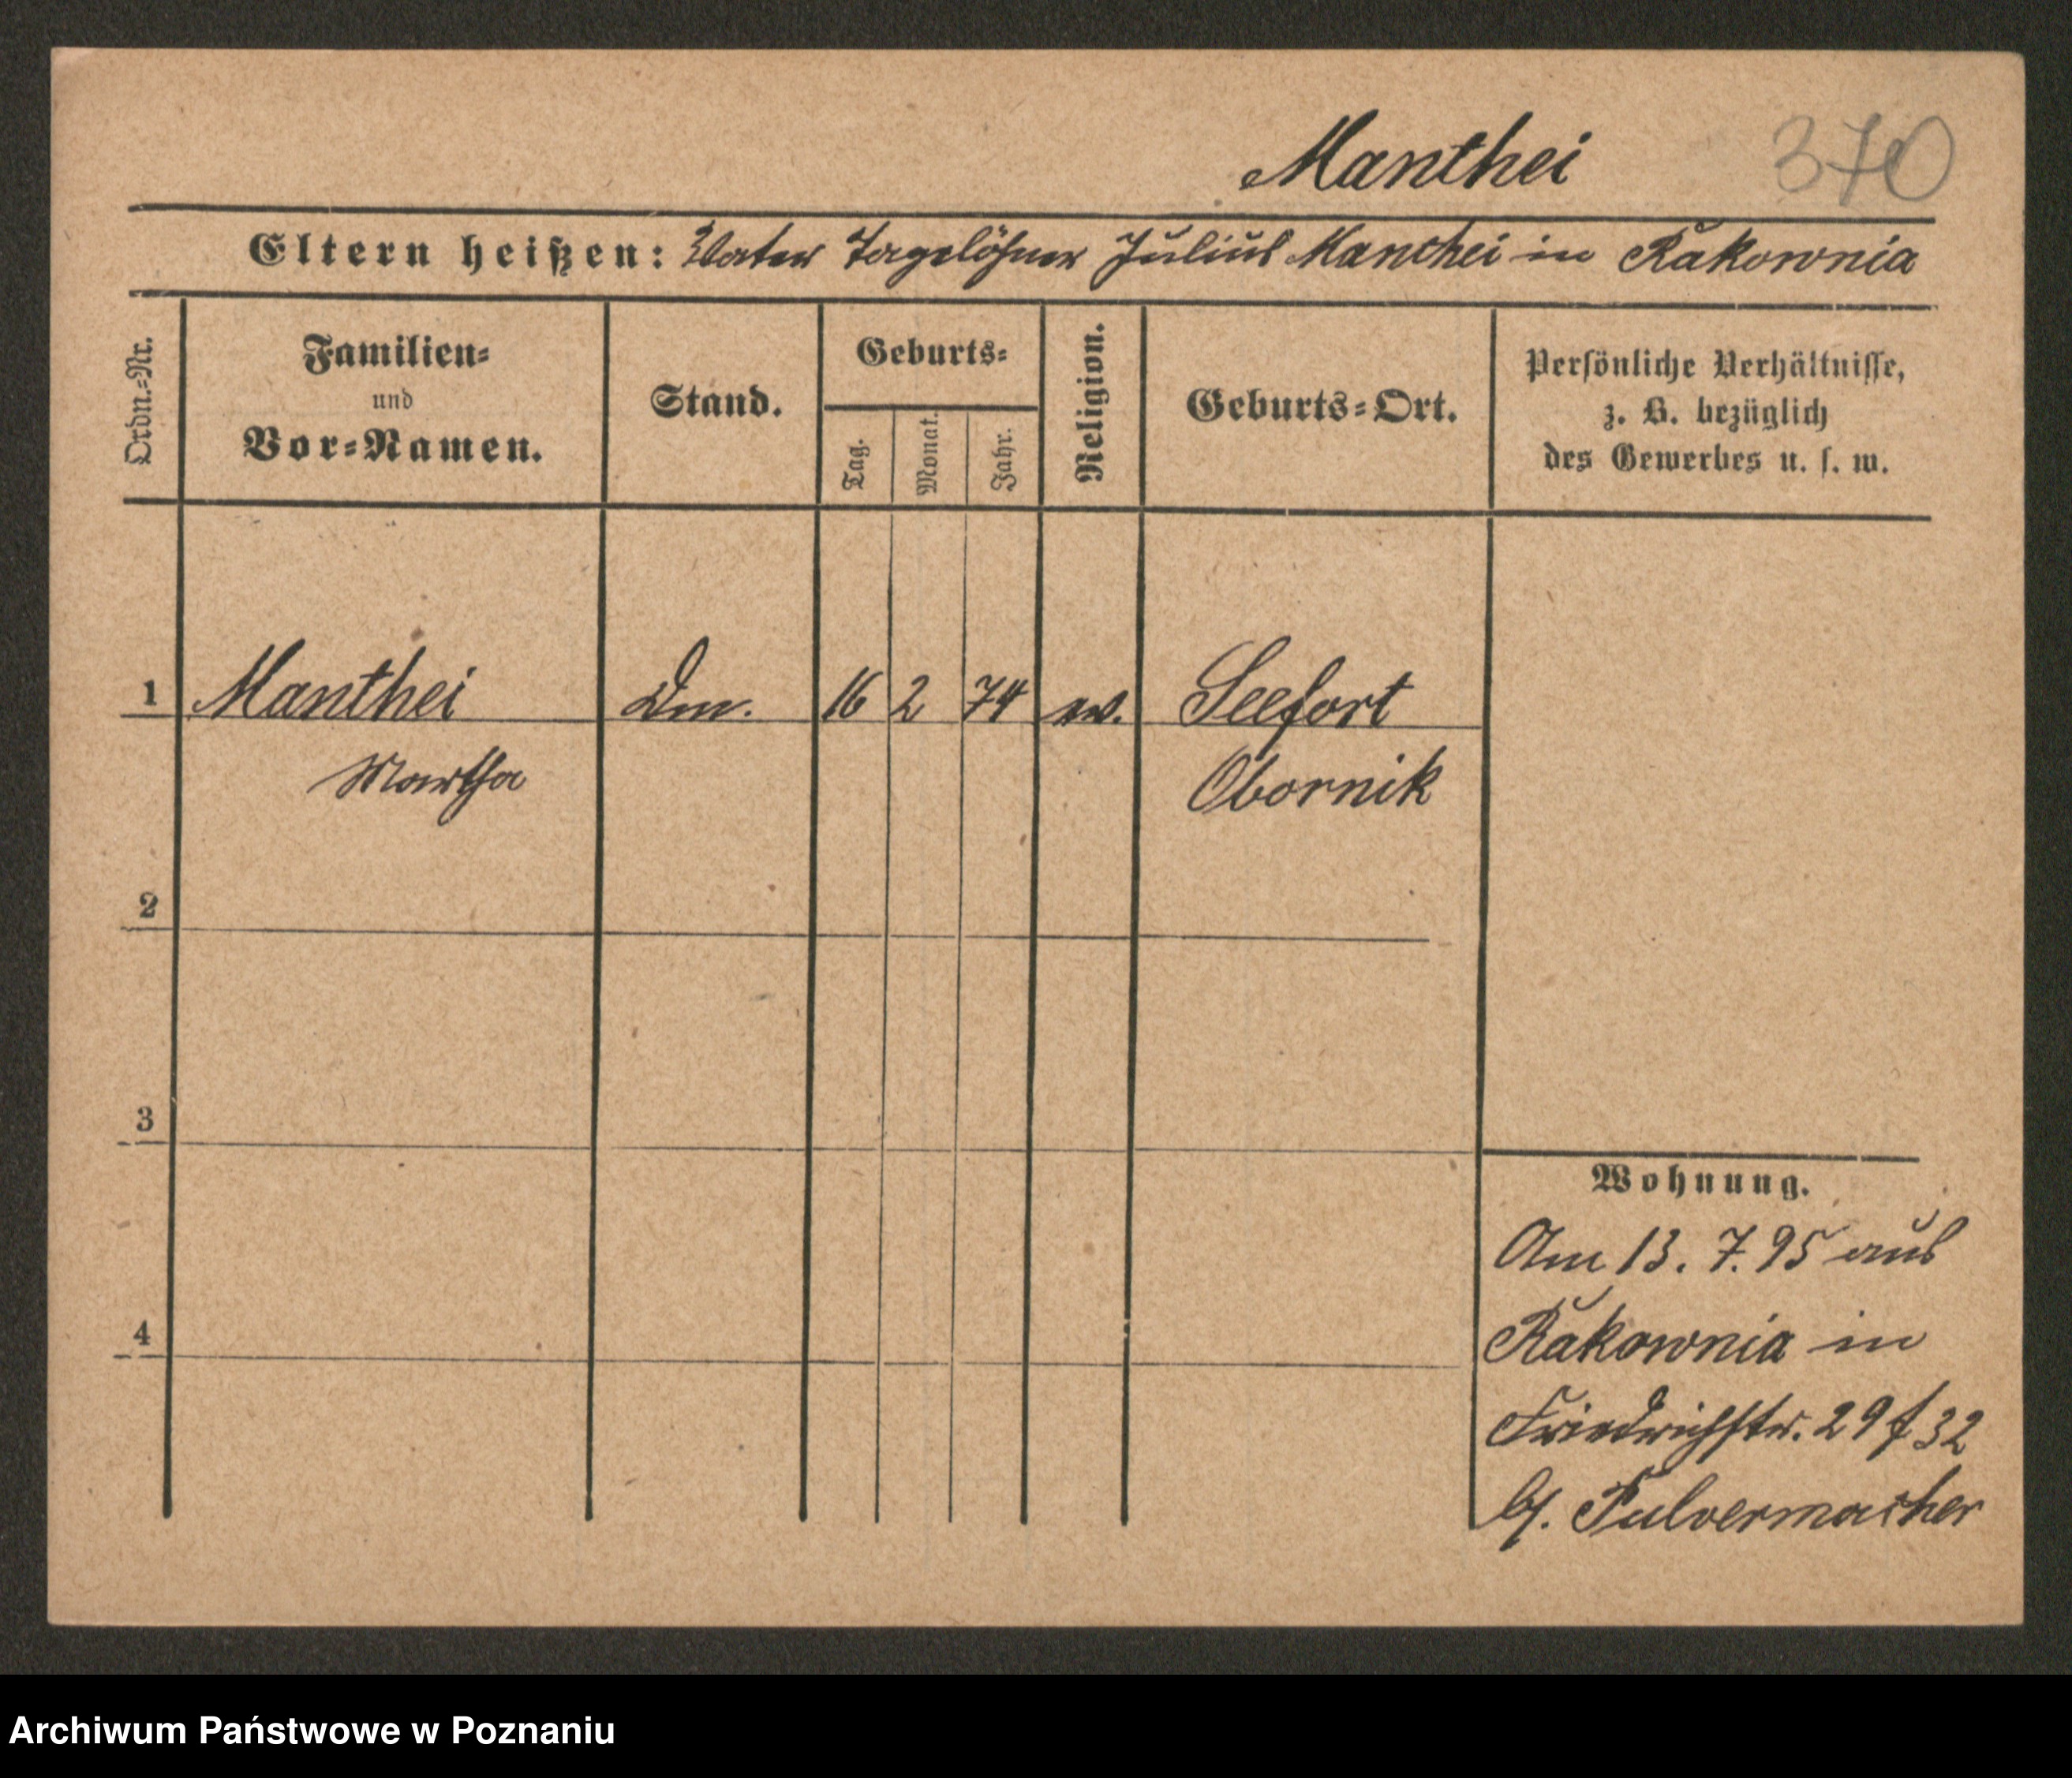 Manthei 370
Eltern heißen: Vater Tagelöhner Julius Manthei in Rakownia
Ordn.=Nr.
Familien=
und
Vor=Namen.
Stand.
Geburts=
Tag.
Monat.
Jahr.
Religion.
Geburts=Ort.
Persönliche Verhältnisse,
z. B. bezüglich
des Gewerbes u. s. w.
1 Manthei Dm. 16 2 74 ev. Seefort
Martha Obornik
2
3
4
Wohnung.
Am 13. 7. 95 aus
Rakownia in
Friedrichstr. 29 f 32
bei Pulvermacher
Archiwum Państwowe w Poznaniu